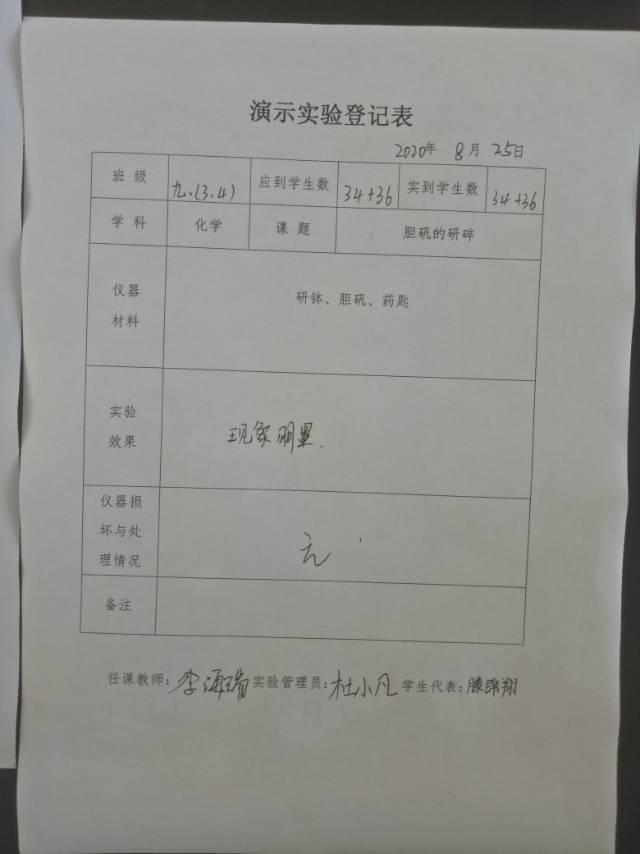 演示实验登记表
2020年 8月 25日
班 级 九.(3.4) 应到学生数 34+36 实到学生数 34+36
学 科 化学 课 题 胆矾的研碎
仪器
材料
研钵、胆矾、药匙
实验
效果
现象明显.
仪器损
坏与处
理情况
无
备注
任课教师: 李海瑞 实验管理员: 杜小凡 学生代表: 滕锦翔